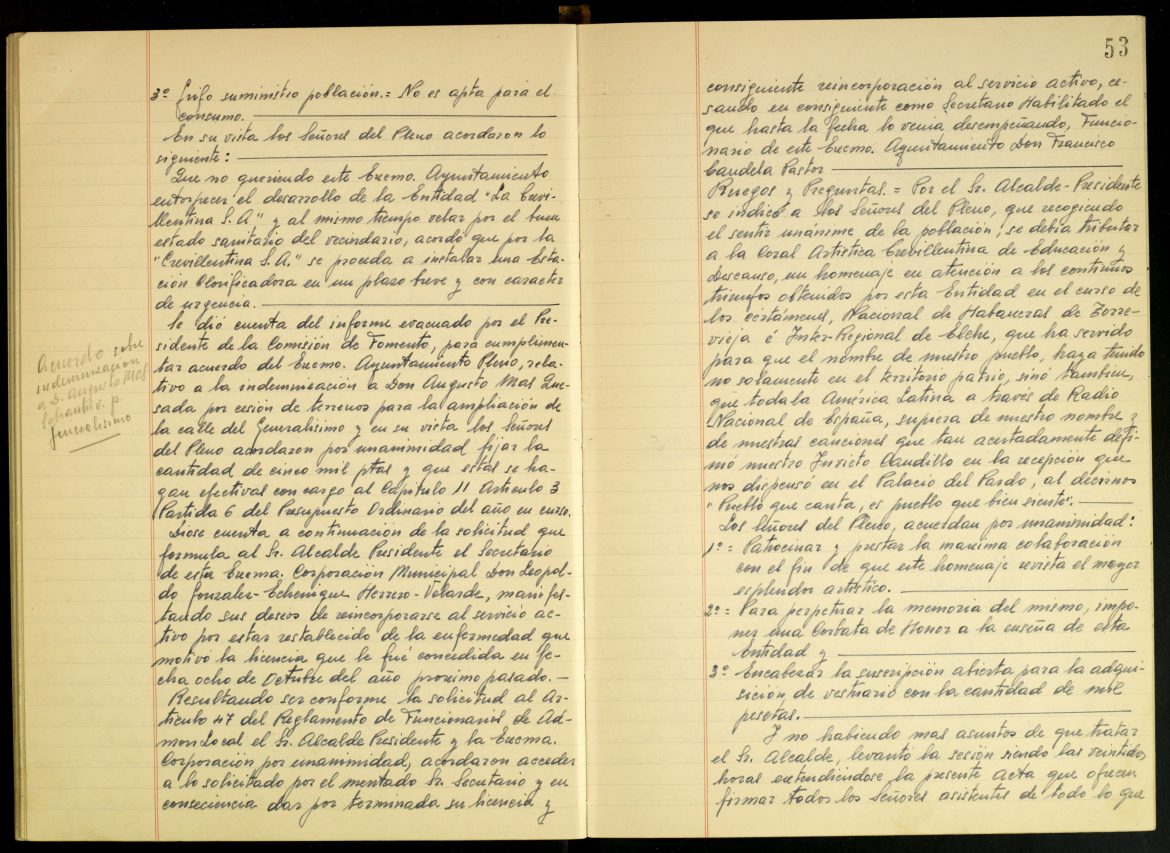 3º Grifo suministro población.= No es apta para el
consumo.
En su vista los Señores del Pleno acordaron lo
siguiente:
Que no queriendo este Excmo. Ayuntamiento
entorpecer el desarrollo de la Entidad "La Crevi-
llentina S.A" y al mismo tiempo velar por el buen
estado sanitario del vecindario, acordó que por la
"Crevillentina S.A." se proceda a instalar una Esta-
ción Clorificadora en un plazo breve y con caracter
de urgencia.
Se dió cuenta del informe evacuado por el Pre-
sidente de la Comisión de Fomento, para cumplimen-
tar acuerdo del Excmo. Ayuntamiento Pleno, rela-
tivo a la indemnisación a Don Augusto Mas Que-
sada por cesión de terrenos para la ampliación de
la calle del Generalisimo y en su vista los Señores
del Pleno acordaron por unanimidad fijar la
cantidad de cinco mil ptas y que estas se ha-
gan efectivas con cargo al Capitulo 11 Articulo 3
Partida 6 del Presupuesto Ordinario del año en curso.
Diose cuenta a continuación de la solicitud que
formula al Sr. Alcalde Presidente el Secretario
de esta Excma. Corporación Municipal Don Leopol-
do Gonzalez-Echenique Herrero-Velarde, manifes-
tando sus deseos de reincorporarse al servicio ac-
tivo por estar restablecido de la enfermedad que
motivó la licencia que le fué concedida en fe-
cha ocho de Octubre del año proximo pasado.-
Resultando ser conforme la solicitud al Ar-
ticulo 47 del Reglamento de Funcionarios de Ad-
mon Local el Sr. Alcalde Presidente y la Excma.
Corporación por unanimidad, acordaron acceder
a lo solicitado por el mentado Sr. Secretario y en
consecuencia dar por terminada su licencia y
Acuerdo sobre
indemnisación
a D. Augusto Mas
Generalisimo
53
consiguiente reincorporación al servicio activo, ce-
sando en consiguiente como Secretario Habilitado el
que hasta la fecha lo venia desempeñando, Funcio-
nario de este Excmo. Ayuntamiento Don Francisco
Candela Pastor
Ruegos y Preguntas.= Por el Sr. Alcalde-Presidente
se indicó a los Señores del Pleno, que recogiendo
el sentir unánime de la población, se debia tributar
a la Coral Artistica Crevillentina de Educación y
Descanso, un homenaje en atención a los continuos
triunfos obtenidos por esta Entidad en el curso de
los certámenes, Nacional de Habaneras de Torre-
vieja é Inter-Regional de Elche, que ha servido
para que el nombre de nuestro pueblo, haya tenido
no solamente en el territorio patrio, sinó tambien,
que toda la América Latina a través de Radio
Nacional de España, supiera de nuestro nombre y
de nuestras canciones que tan acertadamente defi-
nió nuestro Invicto Caudillo en la recepción que
nos dispensó en el Palacio del Pardo, al decirnos
"Pueblo que canta, es pueblo que bien siente".
Los Señores del Pleno, acuerdan por unanimidad:
1º = Patrocinar y prestar la maxima colaboración
con el fin de que este homenaje revista el mayor
esplendor artistico.
2º = Para perpetuar la memoria del mismo, impo-
ner una Corbata de Honor a la enseña de esta
Entidad y
3º Encabezar la suscripción abierta para la adqui-
sición de vestuario con la cantidad de mil
pesetas.
Y no habiendo mas asuntos de que tratar
el Sr. Alcalde, levantó la sesión siendo las veintidos
horas extendiéndose la presente Acta que ofrecen
firmar todos los Señores asistentes de todo lo que